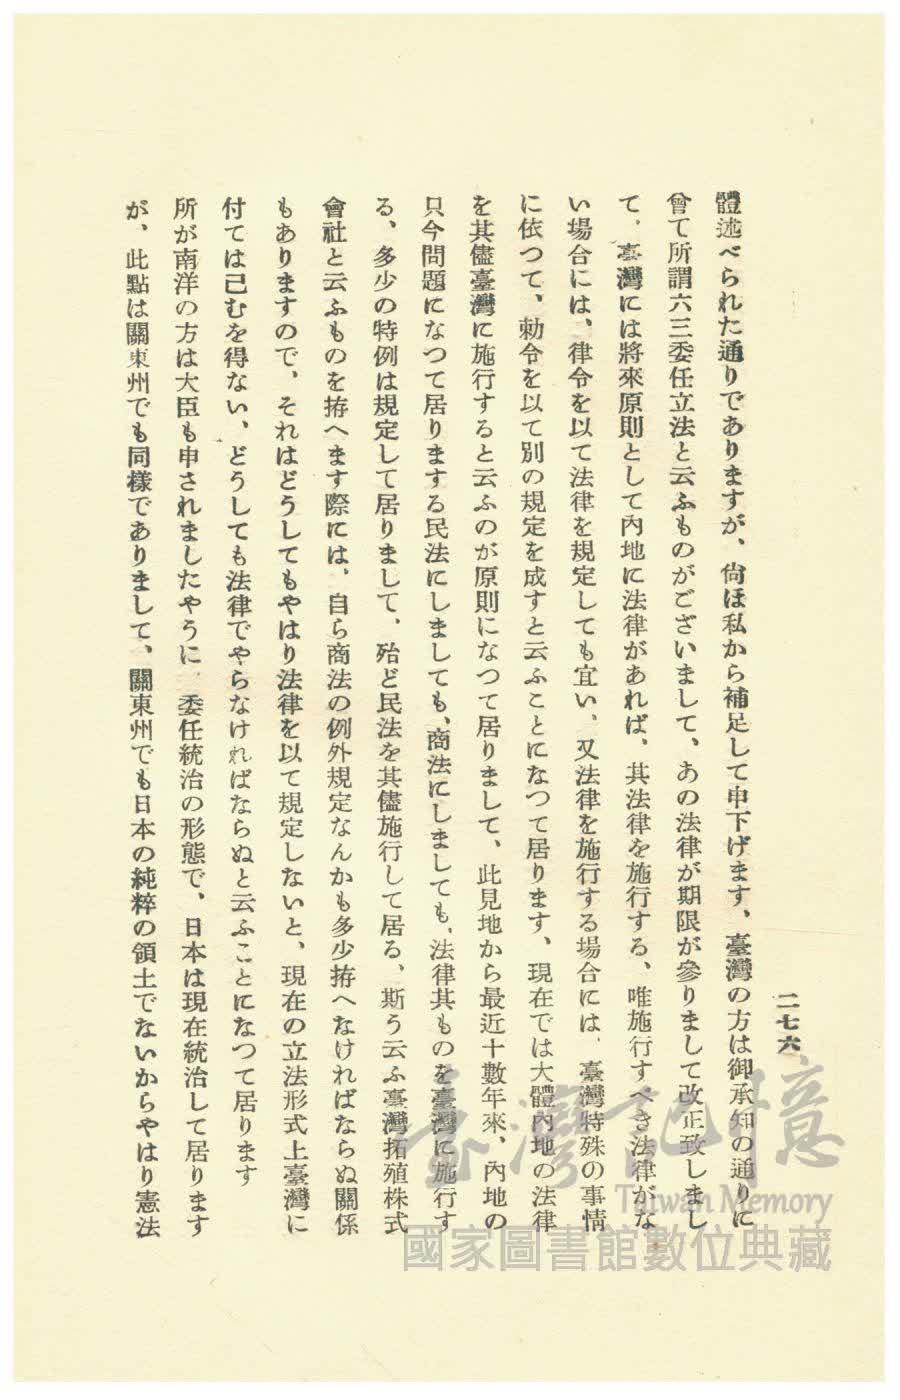 二七六
體述べられた通りでありますが、尙ほ私から補足して申下げます、臺灣の方は御承知の通りに
曾て所謂六三委任立法と云ふものがございまして、あの法律が期限が參りまして改正致しまし
て、臺灣には將來原則として內地に法律があれば、其法律を施行する、唯施行すべき法律がな
い場合には、律令を以て法律を規定しても宜い、又法律を施行する場合には、臺灣特殊の事情
に依つて、勅令を以て別の規定を成すと云ふことになつて居ります、現在では大體內地の法律
を其儘臺灣に施行すると云ふのが原則になつて居りまして、此見地から最近十數年來、內地の
只今問題になつて居りまする民法にしましても、商法にしましても、法律其ものを臺灣に施行す
る、多少の特例は規定して居りまして、殆ど民法を其儘施行して居る、斯う云ふ臺灣拓殖株式
會社と云ふものを拵へます際には、自ら商法の例外規定なんかも多少拵へなければならぬ關係
もありますので、それはどうしてもやはり法律を以て規定しないと、現在の立法形式上臺灣に
付ては己むを得ない、どうしても法律でやらなければならぬと云ふことになつて居ります
所が南洋の方は大臣も申されましたやうに、委任統治の形態で、日本は現在統治して居ります
が、此點は關東州でも同樣でありまして、關東州でも日本の純粹の領土でないからやはり憲法
臺灣記憶
Taiwan Memory
國家圖書館數位典藏